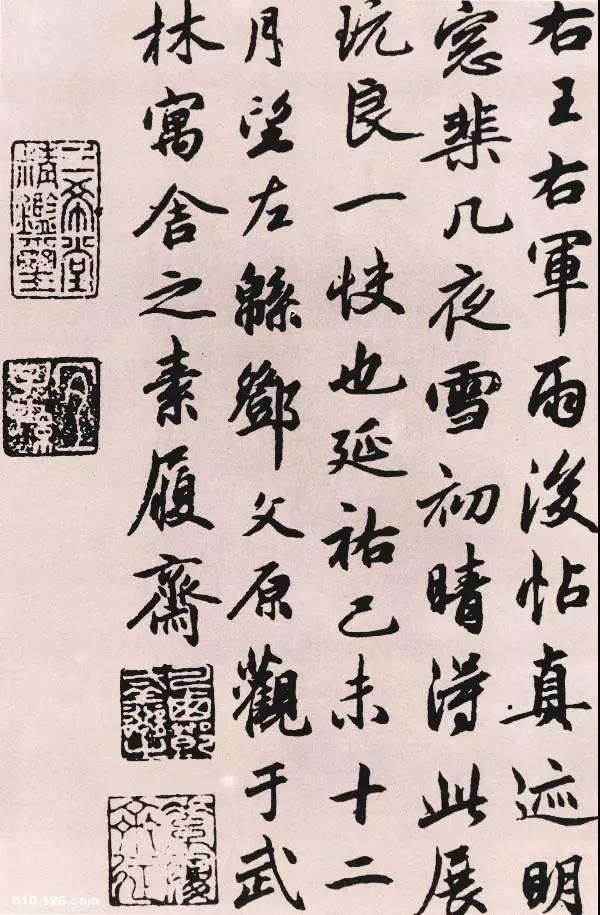 右王右軍雨後帖真迹明
窓棐几夜雪初晴得此展
玩良一快也延祐己未十二
月望左緜鄧文原觀于武
林寓舍之素履齋
三希堂
精鑑璽
宜子孫
素履齋
510.126.com